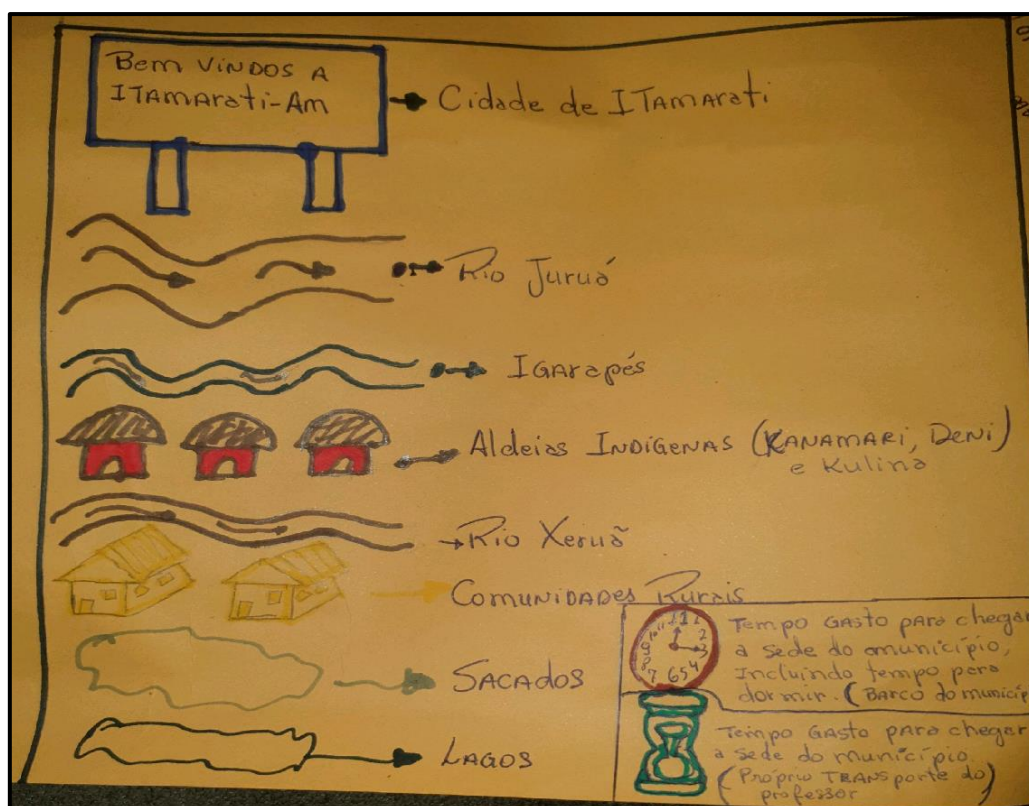 Bem Vindos A
ITAMArati-Am
Cidade de ITAmarati
Rio Juruá
IGArapés
Aldeias INDÍGENAS (KANAMARI, Deni)
e Kulina
Rio Xeruã
Comunidades Rurais
SACADOS
LAGOS
11 12 1
10 2
9 3
8 4
7 6 5
Tempo GAsto para chegar
a sede do município,
Incluindo tempo para
dormir. (BARCO do municíp
Tempo GAsto para chegar
a sede do município.
(Próprio TRANSporte do)
professor